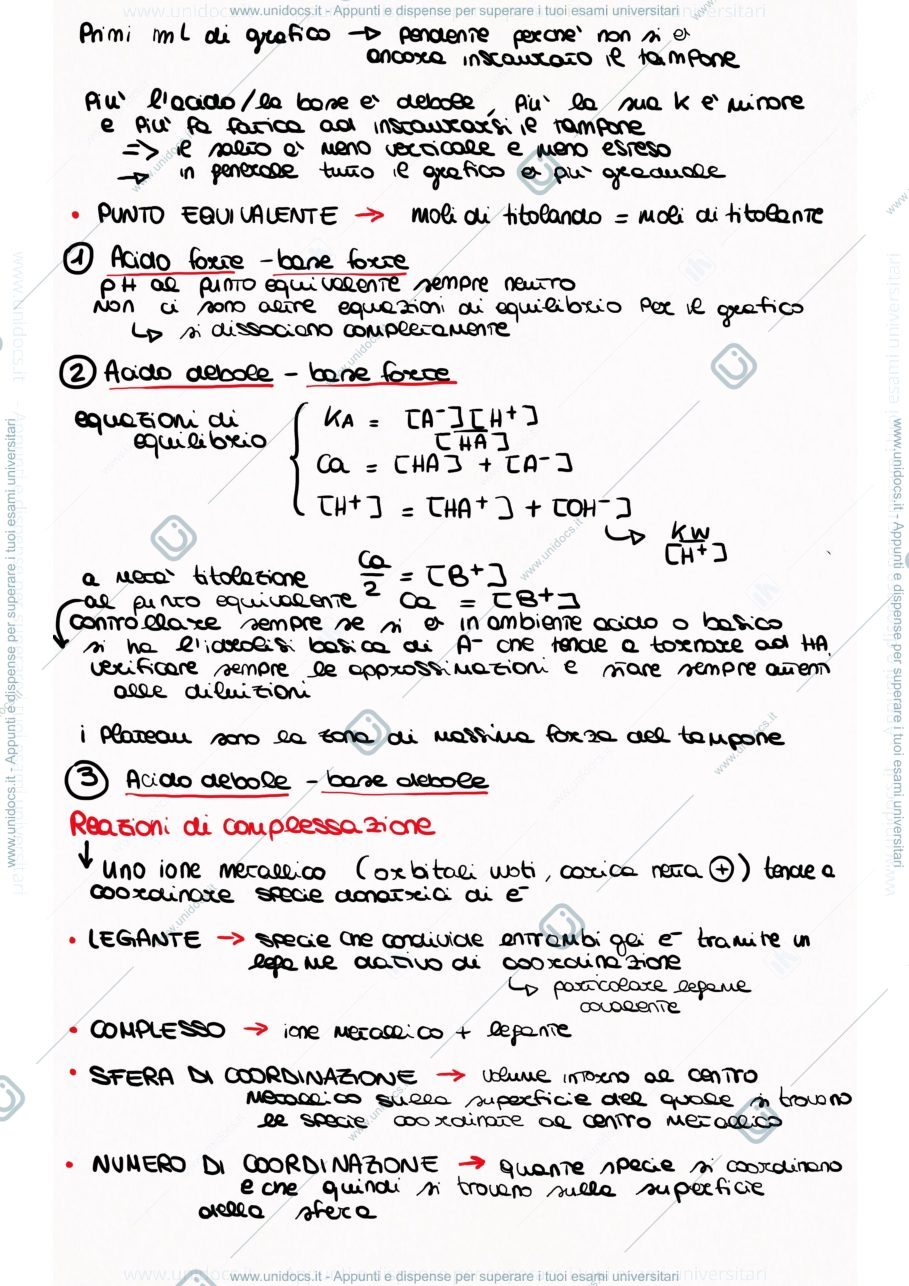 www.unidocs.it - Appunti e dispense per superare i tuoi esami universitari
Primi mL di grafico → pendente perché non si è
ancora instaurato il tampone
Più l'acido/la base è debole, più la sua K è minore
e più fa fatica ad instaurarsi il tampone
=> il salto è meno verticale e meno esteso
→ in generale tutto il grafico è più graduale
• PUNTO EQUIVALENTE → moli di titolando = moli di titolante
① Acido forte - base forte
pH al punto equivalente sempre neutro
Non ci sono altre equazioni di equilibrio per il grafico
↳ si dissociano completamente
② Acido debole - base forte
equazioni di equilibrio
KA = [A⁻][H⁺] / [HA]
Ca = [HA] + [A⁻]
[H⁺] = [HA⁺] + [OH⁻]
↳ KW / [H⁺]
a metà titolazione Ca/2 = [B⁺]
al punto equivalente Ca = [B⁺]
controllare sempre se si è in ambiente acido o basico
si ha l'idrolisi basica di A⁻ che tende a tornare ad HA
verificare sempre le approssimazioni e stare sempre attenti
alle diluizioni
i Plateau sono la zona di massima forza del tampone
③ Acido debole - base debole
Reazioni di complessazione
↓ Uno ione metallico (orbitali vuoti, carica netta ⊕) tende a
coordinare specie donatrici di e⁻
• LEGANTE → specie che condivide entrambi gli e⁻ tramite un
legame dativo di coordinazione
↳ particolare legame
covalente
• COMPLESSO → ione metallico + legante
• SFERA DI COORDINAZIONE → volume intorno al centro
metallico sulla superficie del quale si trovano
le specie coordinate al centro metallico
• NUMERO DI COORDINAZIONE → quante specie si coordinano
e che quindi si trovano sulla superficie
della sfera
www.unidocs.it - Appunti e dispense per superare i tuoi esami universitari
www.unidocs.it - Appunti e dispense per superare i tuoi esami universitari
www.unidocs.it - Appunti e dispense per superare i tuoi esami universitari